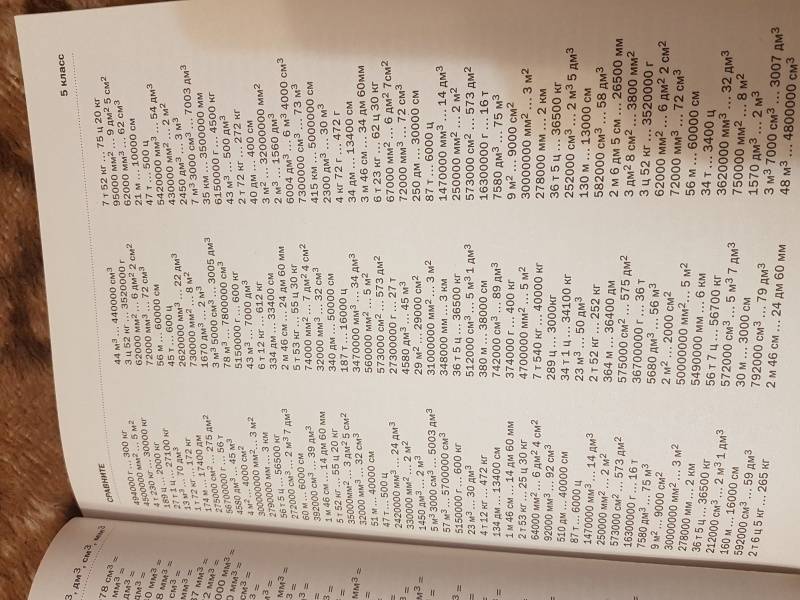 5 класс
СРАВНИТЕ
494000 г … 300 кг
4500000 мм² … 5 м²
4 т 230 кг … 30000 кг
89 ц … 2000 кг
27 т 1 ц … 27100 кг
13 м³ … 70 дм³
1 т 72 кг … 172 кг
174 м … 17400 дм
275000 см² … 275 дм²
56700000 г … 56 т
4580 дм³ … 45 м³
4 м² … 4000 см²
300000000 мм² … 3 м²
2790000 мм … 3 км
56 т 5 ц … 56500 кг
272000 см³ … 2 м³ 7 дм³
60 м … 6000 см
392000 см³ … 39 дм³
1 м 46 см … 14 дм 60 мм
5 т 52 кг … 55 ц 20 кг
35000 мм² … 3 дм² 5 см²
32000 мм³ … 32 см³
51 м … 40000 см
47 т … 500 ц
2420000 мм³ … 24 дм³
330000 мм² … 2 м²
1450 дм³ … 2 м³
5 м³ 3000 см³ … 5003 дм³
57 м³ … 5700000 см³
5150000 г … 600 кг
23 м³ … 30 дм³
4 т 12 кг … 472 кг
134 дм … 13400 см
1 м 46 см … 14 дм 60 мм
2 т 53 кг … 25 ц 30 кг
64000 мм² … 6 дм² 4 см²
92000 мм³ … 92 см³
510 дм … 40000 см
87 т … 6000 ц
1470000 мм³ … 14 дм³
250000 мм² … 2 м²
573000 см² … 573 дм²
16300000 г … 16 т
7580 дм³ … 75 м³
9 м² … 9000 см²
30000000 мм² … 3 м²
278000 мм … 2 км
36 т 5 ц … 36500 кг
212000 см³ … 2 м³ 1 дм³
160 м … 16000 см
592000 см³ … 59 дм³
2 т 6 ц 5 кг … 265 кг
44 м³ … 440000 см³
3 ц 52 кг … 3520000 г
62000 мм² … 6 дм² 2 см²
72000 мм³ … 72 см³
56 м … 60000 см
45 т … 600 ц
2620000 мм³ … 22 дм³
730000 мм² … 8 м²
1670 дм³ … 2 м³
3 м³ 5000 см³ … 3005 дм³
78 м³ … 7800000 см³
5150000 г … 600 кг
43 м³ … 7000 дм³
6 т 12 кг … 612 кг
334 дм … 33400 см
2 м 46 см … 24 дм 60 мм
5 т 53 кг … 55 ц 30 кг
74000 мм² … 7 дм² 4 см²
32000 мм³ … 32 см³
340 дм … 50000 см
187 т … 16000 ц
3470000 мм³ … 34 дм³
560000 мм² … 5 м²
573000 см² … 573 дм²
27300000 г … 27 т
4580 дм³ … 45 м³
29 м² … 29000 см²
31000000 мм² … 3 м²
348000 мм … 3 км
36 т 5 ц … 36500 кг
512000 см³ … 5 м³ 1 дм³
380 м … 38000 см
742000 см³ … 89 дм³
374000 г … 400 кг
4700000 мм² … 5 м²
7 т 540 кг … 40000 кг
289 ц … 3000кг
34 т 1 ц … 34100 кг
23 м³ … 50 дм³
2 т 52 кг … 252 кг
364 м … 36400 дм
575000 см² … 575 дм²
36700000 г … 36 т
5680 дм³ … 56 м³
2 м² … 2000 см²
500000000 мм² … 5 м²
5490000 мм … 6 км
56 т 7 ц … 56700 кг
572000 см³ … 5 м³ 7 дм³
30 м … 3000 см
792000 см³ … 79 дм³
2 м 46 см … 24 дм 60 мм
7 т 52 кг … 75 ц 20 кг
95000 мм² … 9 дм² 5 см²
62000 мм³ … 62 см³
21 м … 10000 см
47 т … 500 ц
5420000 мм³ … 54 дм³
430000 мм² … 2 м²
2450 дм³ … 3 м³
7 м³ 3000 см³ … 7003 дм³
35 км … 3500000 мм
6150000 г … 450 кг
43 м³ … 500 дм³
2 т 72 кг … 272 кг
40 дм … 400 см
3 м² … 32000000 мм²
2 м³ … 1560 дм³
6004 дм³ … 6 м³ 4000 см³
7300000 см³ … 73 м³
415 км … 5000000 см
2300 дм³ … 30 м³
4 кг 72 г … 472 г
34 дм … 13400 см
3 м 46 см … 34 дм 60мм
6 т 23 кг … 62 ц 30 кг
67000 мм² … 6 дм² 7 см²
72000 мм³ … 72 см³
250 дм … 30000 см
87 т … 6000 ц
1470000 мм³ … 14 дм³
250000 мм² … 2 м²
573000 см² … 573 дм²
16300000 г … 16 т
7580 дм³ … 75 м³
9 м² … 9000 см²
30000000 мм² … 3 м²
278000 мм … 2 км
36 т 5 ц … 36500 кг
252000 см³ … 2 м³ 5 дм³
130 м … 13000 см
582000 см³ … 58 дм³
2 м 6 дм 5 см … 26500 мм
3 дм² 8 см² … 3800 мм²
3 ц 52 кг … 3520000 г
62000 мм² … 6 дм² 2 см²
72000 мм³ … 72 см³
56 м … 60000 см
34 т … 3400 ц
3620000 мм³ … 32 дм³
750000 мм² … 8 м²
1570 дм³ … 2 м³
3 м³ 7000 см³ … 3007 дм³
48 м³ … 4800000 см³